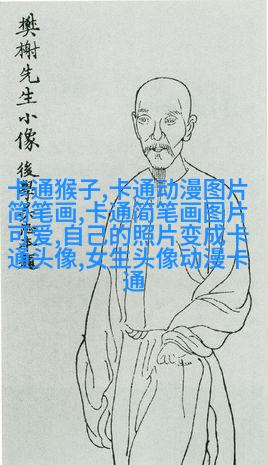 樊榭先生小像
後學
卡通猴子,卡通动漫图片
简笔画,卡通简笔画图片
可爱,自己的照片变成卡
通头像,女生头像动漫卡
通